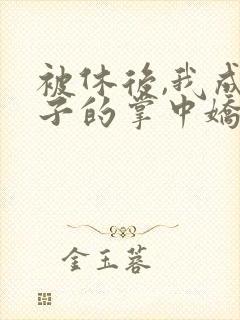 被休後,我成
子的掌中嬌
金玉蓉